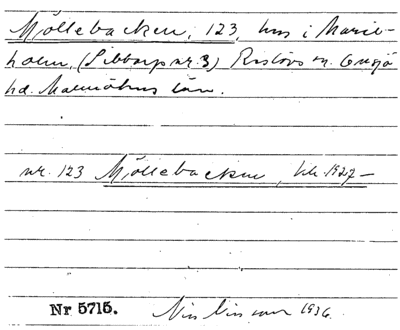 Möllebacken, 123, hus i Marie-
holm, (Sibbarp nr. 3) Reslövs sn. Onsjö
hd. Malmöhus län.
nr. 123 Möllebacken, bli. 1927 –
Nr 5715. Nils 1936.